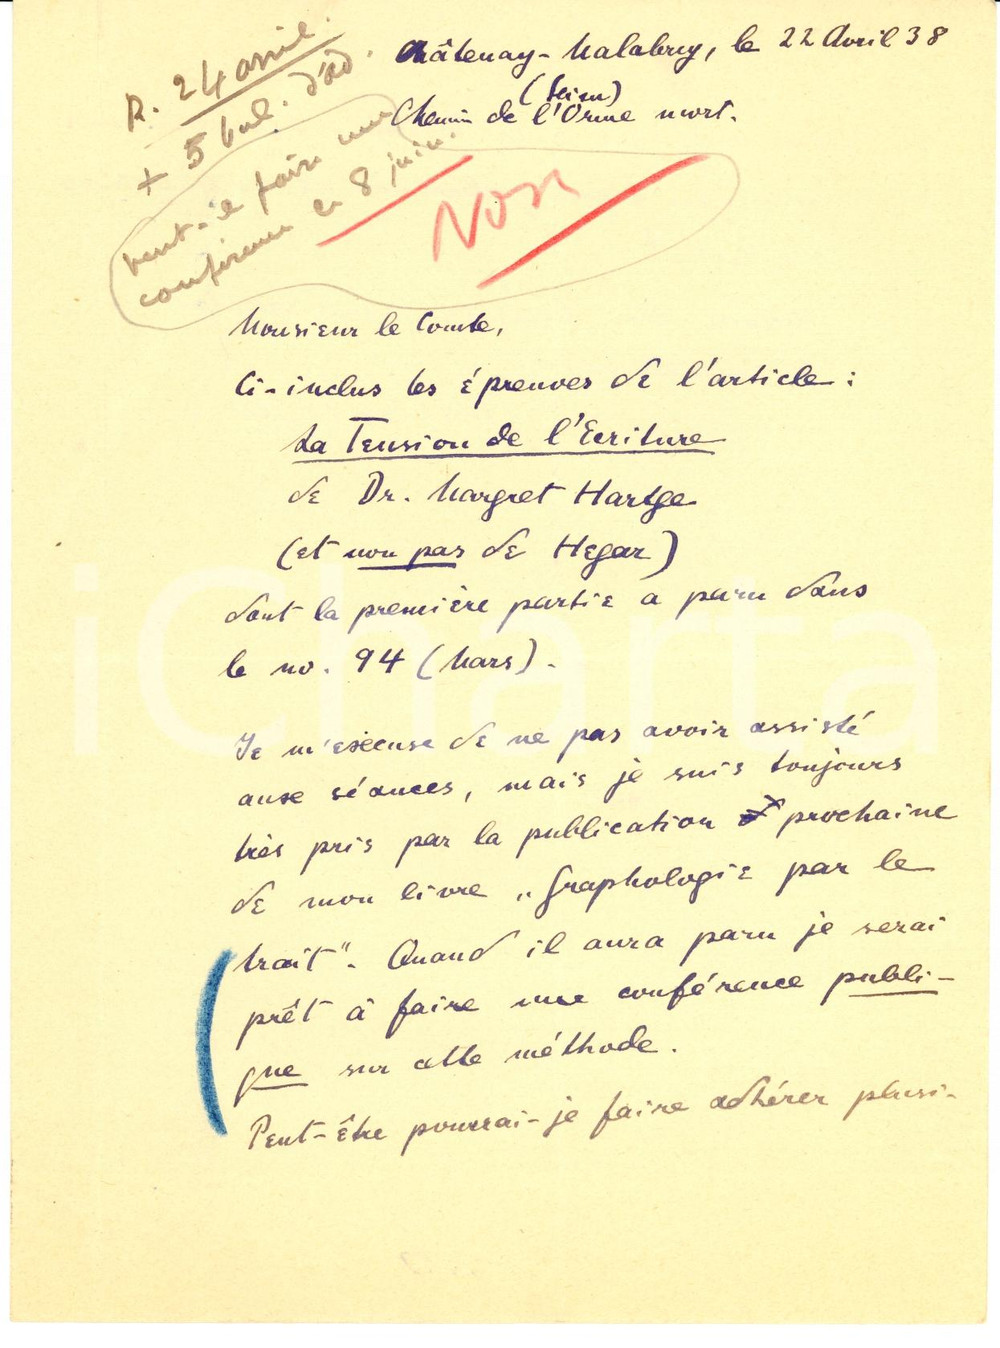 R. 24 avril.
+ 5 bul. d'ad.
veut-il faire une
conférence le 8 juin.
Non
Châtenay-Malabry, le 22 Avril 38
(Seine)
Chemin de l'Orme mort.
Monsieur le Comte,
Ci-inclus les épreuves de l'article :
La Tension de l'Ecriture
de Dr. Margret Hartge
(et non pas de Hegar)
dont la première partie a paru dans
le no. 94 (Mars).
Je m'excuse de ne pas avoir assisté
aux séances, mais je suis toujours
très pris par la publication prochaine
de mon livre „Graphologie par le
trait". Quand il aura paru je serai
prêt à faire une conférence publi-
que sur cette méthode.
Peut-être pourrai-je faire adhérer plusi-
iCharta